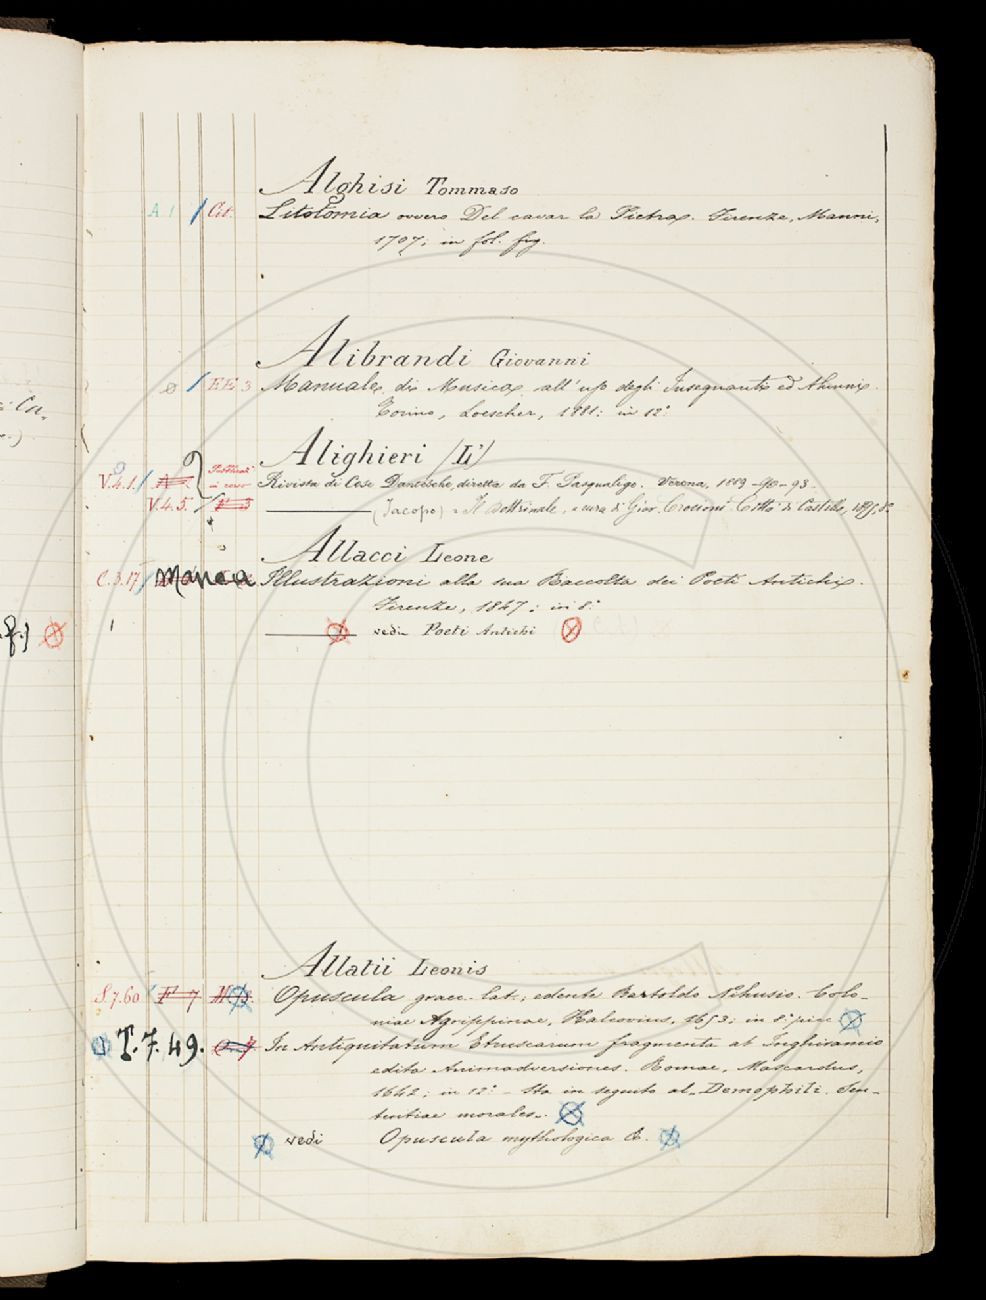 Alghisi Tommaso
A.1 / Cit. Litotomia ovvero Del cavar la Pietra. Firenze, Manni,
1707; in fol. fig.
Alibrandi Giovanni
/ EE 3 Manuale di Musica all'uso degli Insegnanti ed Alunni.
Torino, Loescher, 1881; in 12°
Alighieri (L')
V.4.1. / Pubblicaz. in corso Rivista di Cose Dantesche, diretta da F. Pasqualigo. Verona, 1889-90-93.
V.4.5. / F 5 (Jacopo) - Il Dottrinale, a cura di Giov. Crocioni. Città di Castello, 1895, 8°
Allacci Leone
C.3.17 / manca Illustrazioni alla sua Raccolta dei Poeti Antichi.
Firenze, 1847; in 8°
vedi Poeti Antichi
Allatii Leonis
S.7.60 F 7 Opuscula graec. lat.; edente Bartoldo Nihusio. Colo-
niae Agrippinae, Kalcovius, 1653; in 8° picc.
T.7.49. In Antiquitatum Etruscarum fragmenta ab Inghiramio
edita Animadversiones. Romae, Mascardus,
1642; in 12° - Sta in seguito al „Demophili. Sen-
tentiae morales„.
vedi Opuscula mythologica &.